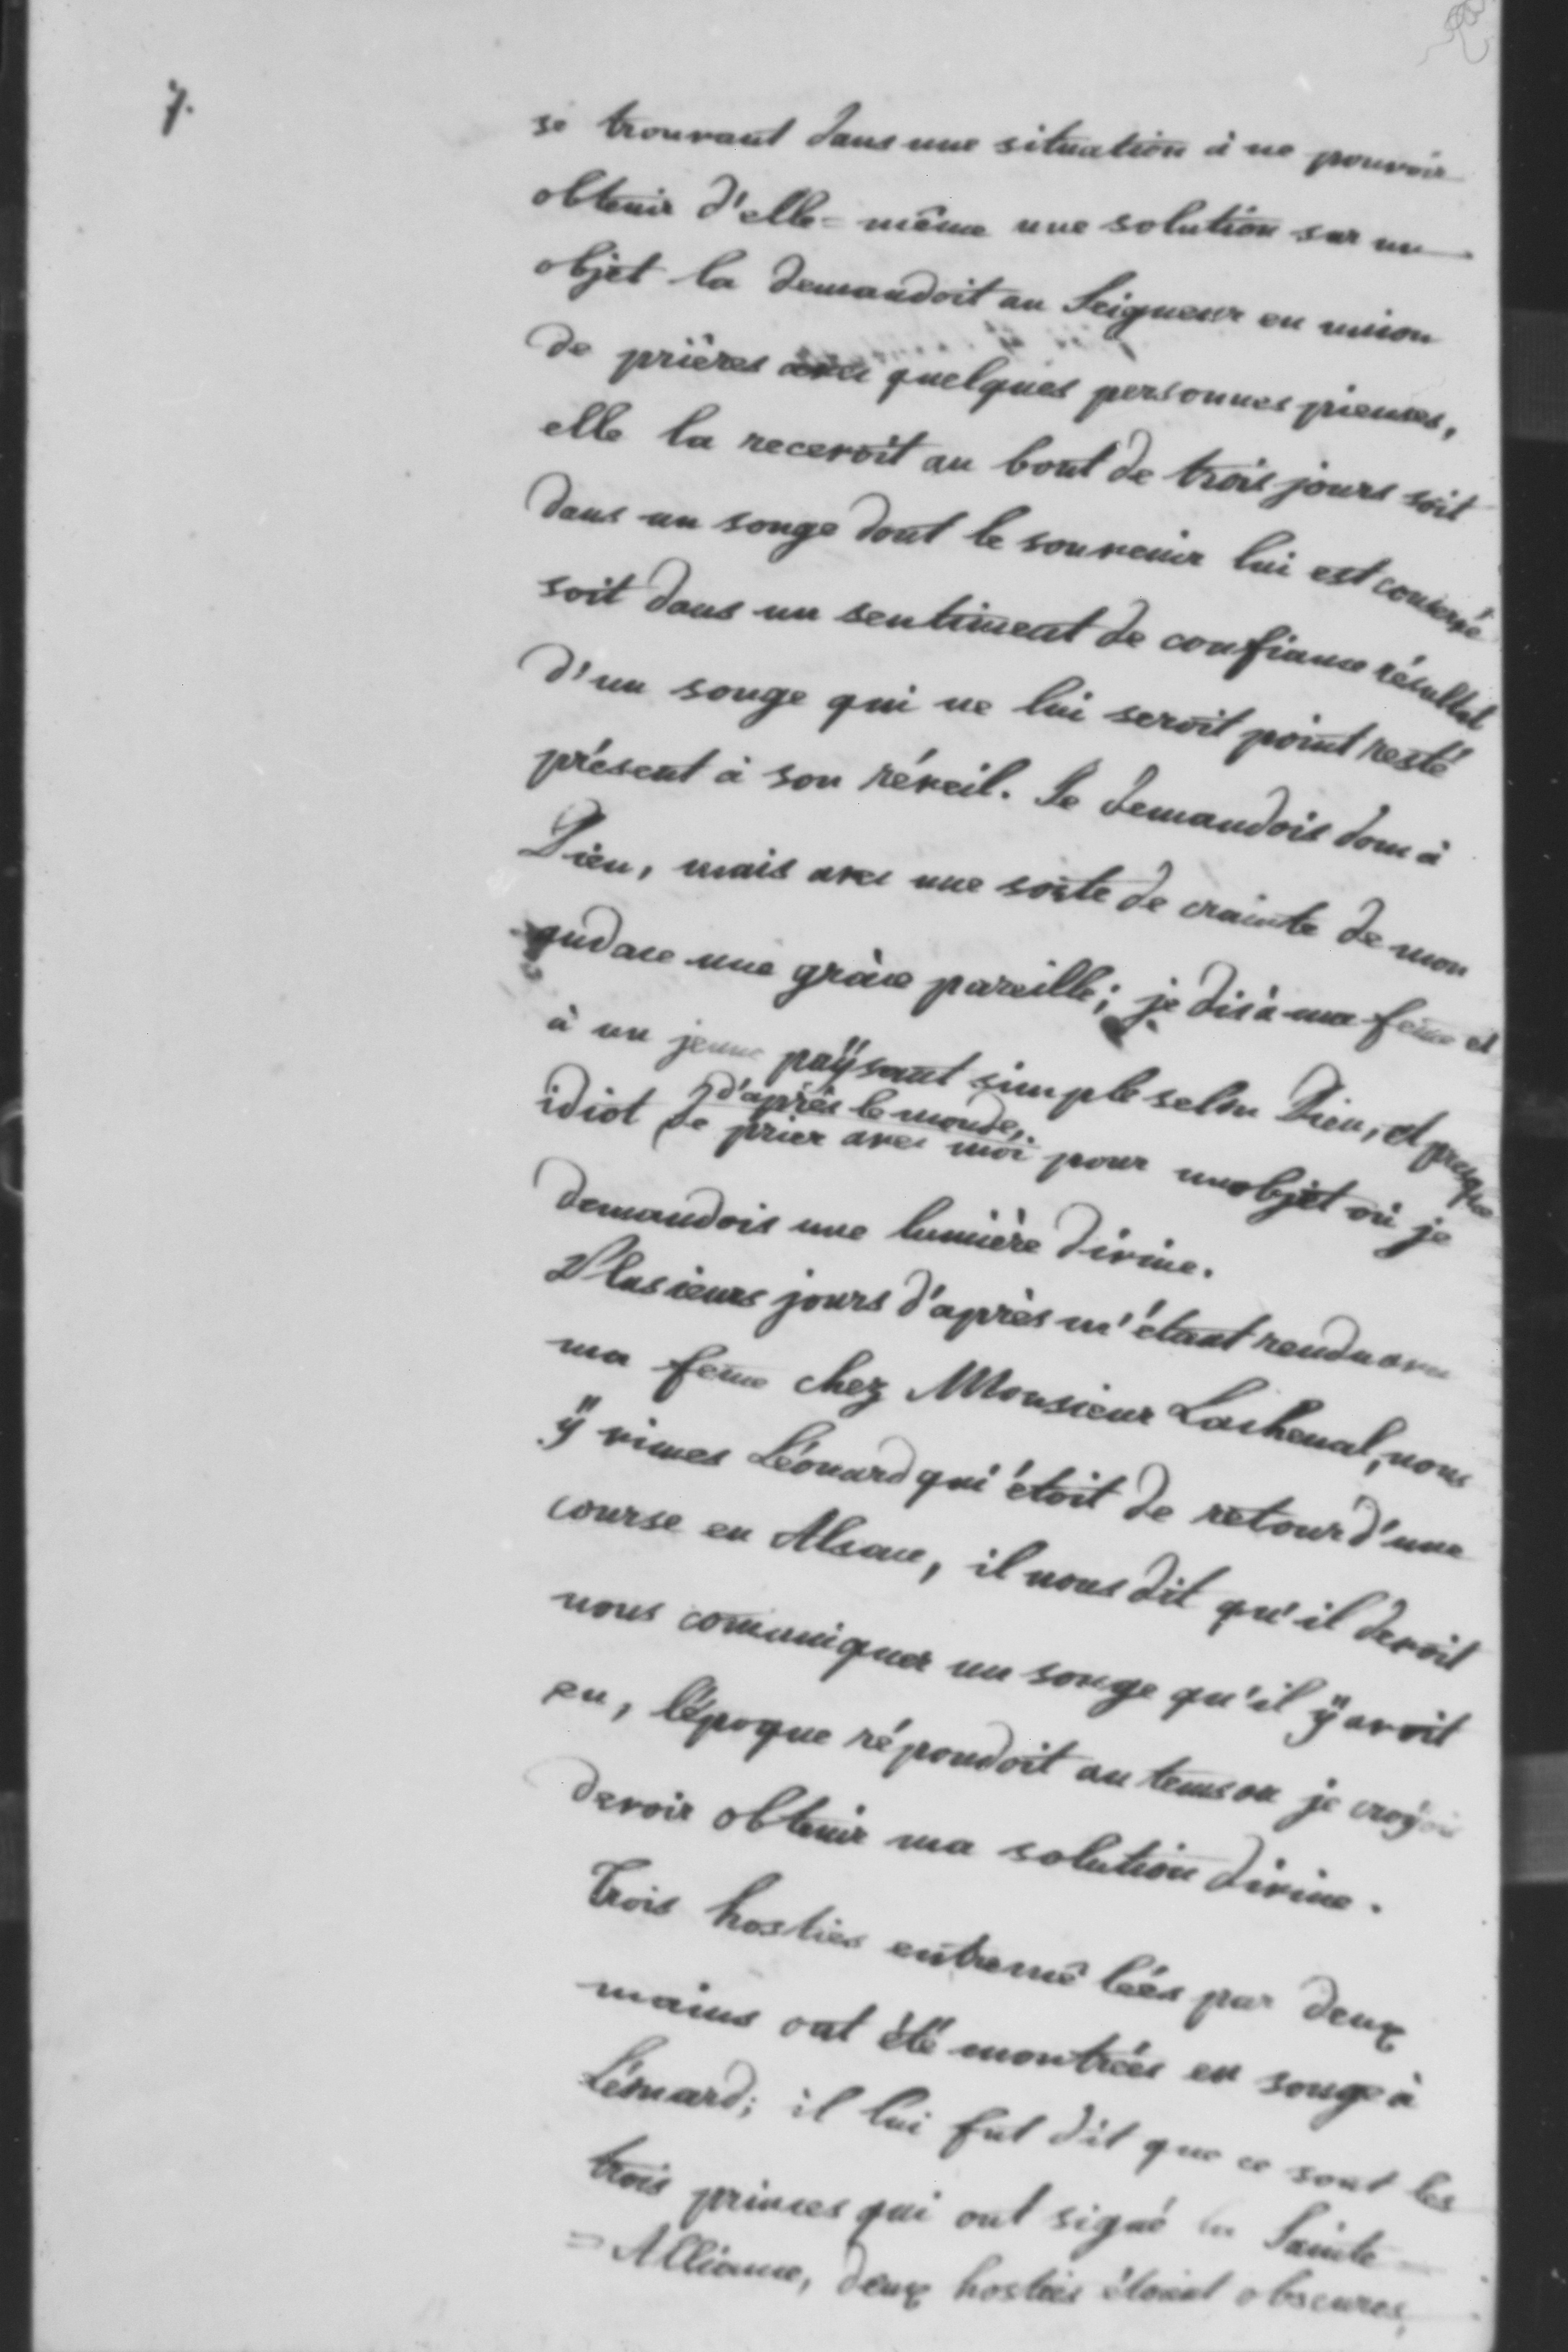 7.
se trouvant dans une situation à ne pouvoir
obtenir d'elle=même une solution sur un
objet la demandoit au Seigneur en union
de prières avec quelques personnes pieuses,
elle la recevoit au bout de trois jours soit
dans un songe dont le souvenir lui est conservé
soit dans un sentiment de confiance résultat
d'un songe qui ne lui seroit point resté
présent à son réveil. Je demandois donc à
Dieu, mais avec une sorte de crainte de mon
audace une grâce pareille; je dis à ma feme et
à un jeune paÿsant simple selon Dieu, et presque
d'après le monde,
idiot de prier avec moi pour un objet où je
demandois une lumière divine.
Plusieurs jours d'après m'étant rendu avec
ma feme chez Monsieur Lachenal, nous
ÿ vimes Léonard qui étoit de retour d'une
course en Alsace, il nous dit qu'il devoit
nous comuniquer un songe qu'il ÿ avoit
eu, l'époque répondoit au tems ou je croÿois
devoir obtenir ma solution divine.
Trois hosties entremêlées par deux
mains ont été montrées en songe à
Léonard; il lui fut dit que ce sont les
trois princes qui ont signé la Sainte
=Alliance, deux hosties étoient obscures,